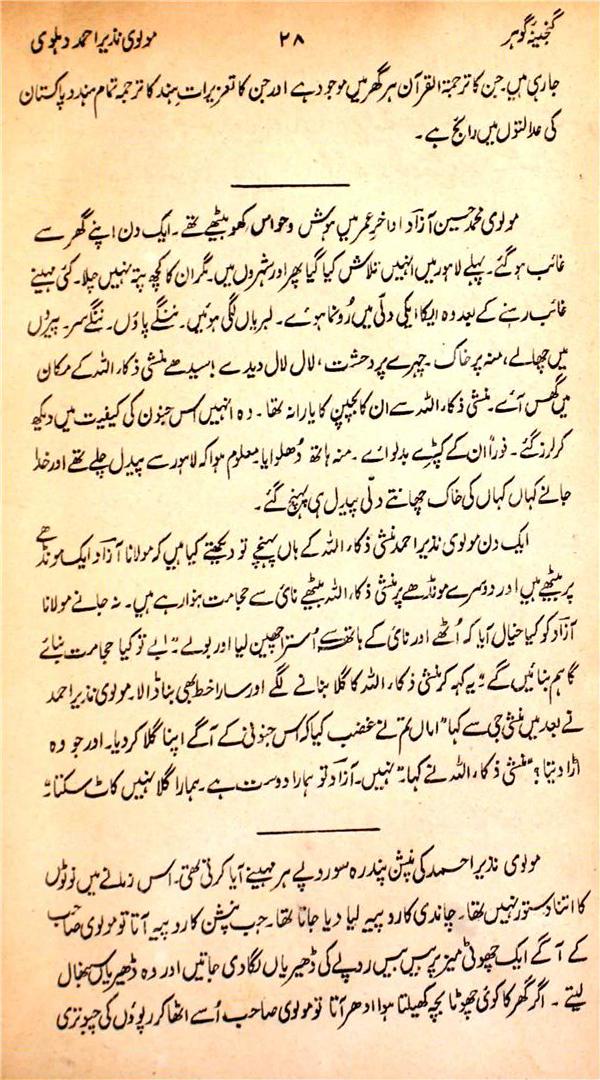 گنجینۂ گوہر ۲۸ مولوی نذیر احمد دہلوی
جاری ہیں۔ جن کا ترجمۃ القرآن ہر گھر میں موجود ہے اور جن کا تعزیرات ہند کا ترجمہ تمام ہند و پاکستان
کی عدالتوں میں رائج ہے۔
مولوی محمد حسین آزاد اواخرِ عمر میں ہوش و حواس کھو بیٹھے تھے۔ ایک دن اپنے گھر سے
غائب ہو گئے۔ پہلے لاہور میں انہیں تلاش کیا گیا پھر اور شہروں میں۔ مگر ان کا کچھ پتہ نہیں چلا۔ کئی مہینے
غائب رہنے کے بعد وہ ایکا ایکی دلّی میں رُونما ہوئے۔ لبریاں لگی ہوئیں۔ ننگے پاؤں۔ ننگے سر۔ پیروں
میں چھالے، منہ پر خاک۔ چہرے پر دحشت، لال لال دیدے! سیدھے منشی ذکاء اللہ کے مکان
میں گھس آئے۔ منشی ذکاء اللہ سے ان کا بچپن کا یارانہ تھا۔ وہ انہیں اس جنون کی کیفیت میں دیکھ
کر لرز گئے۔ فوراً ان کے کپڑے بدلوائے۔ منہ ہاتھ دُھلوایا۔ معلوم ہوا کہ لاہور سے پیدل چلے تھے اور خدا
جانے کہاں کہاں کی خاک چھانتے دلّی پیدل ہی پہنچ گئے۔
ایک دن مولوی نذیر احمد منشی ذکاء اللہ کے ہاں پہنچے تو دیکھتے کیا ہیں کہ مولانا آزاد ایک مونڈھے
پر بیٹھے ہیں اور دوسرے مونڈھے پر منشی ذکاء اللہ بیٹھے نائی سے حجامت بنوا رہے ہیں۔ نہ جانے مولانا
آزاد کو کیا خیال آیا کہ اُٹھے اور نائی کے ہاتھ سے اُسترا چھین لیا اور بولے۔ "ابے تو کیا حجامت بنائے
گا ہم بنائیں گے۔" یہ کہہ کر منشی ذکاء اللہ کا گلا بنانے لگے اور سارا خط بھی بنا ڈالا۔ مولوی نذیر احمد
نے بعد میں منشی جی سے کہا "اماں تم نے غضب کیا کہ اس جنونی کے آگے اپنا گلا کر دیا۔ اور جو وہ
اڑا دیتا؟" منشی ذکاء اللہ نے کہا۔ "نہیں۔ آزاد تو ہمارا دوست ہے۔ ہمارا گلا نہیں کاٹ سکتا۔"
مولوی نذیر احمد کی پنشن پندرہ سو روپے ہر مہینے آیا کرتی تھی۔ اس زمانے میں نوٹوں
کا اتنا دستور نہیں تھا۔ چاندی کا روپیہ لیا دیا جاتا تھا۔ جب پنشن کا روپیہ آتا تو مولوی صاحب
کے آگے ایک چھوٹی میز پر بیس بیس روپے کی ڈھیریاں لگا دی جاتیں اور وہ ڈھیریاں سنبھال
لیتے۔ اگر گھر کا کوئی چھوٹا بچہ کھیلتا ہوا ادھر آتا تو مولوی صاحب اُسے اٹھا کر روپوں کی چبوتری